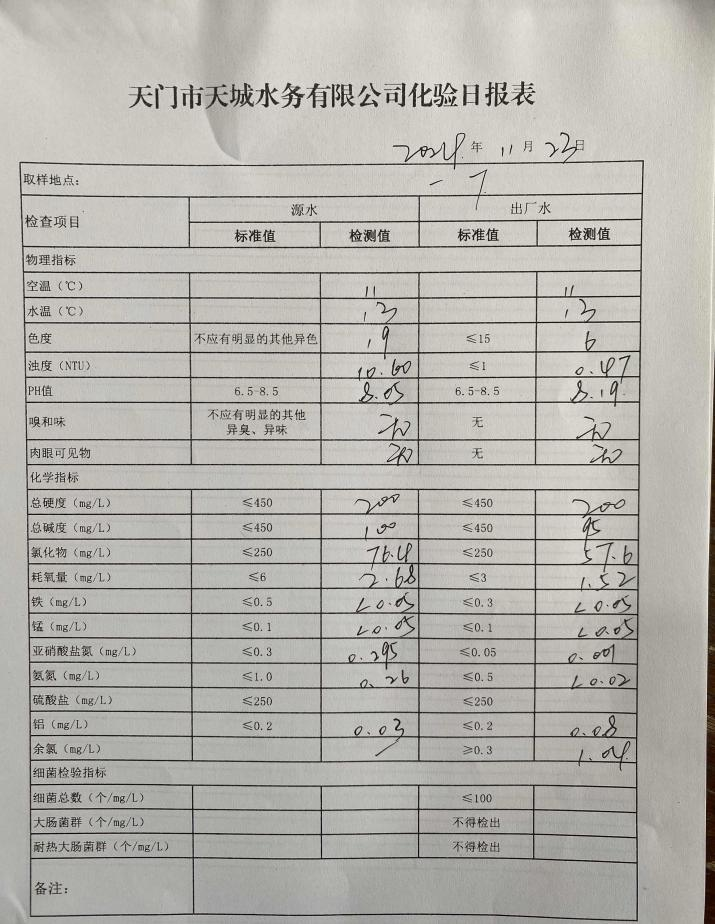 天门市天城水务有限公司化验日报表
2024年 11月 23日
取样地点：
检查项目 源水 出厂水
标准值 检测值 标准值 检测值
物理指标
空温（℃） 11 11
水温（℃） 13 13
色度 不应有明显的其他异色 19 ≤15 6
浊度（NTU） 10.60 ≤1 0.47
PH值 6.5-8.5 8.05 6.5-8.5 8.19
嗅和味 不应有明显的其他 无 无 无
异臭、异味
肉眼可见物 无 无 无
化学指标
总硬度（mg/L） ≤450 200 ≤450 200
总碱度（mg/L） ≤450 100 ≤450 95
氯化物（mg/L） ≤250 76.4 ≤250 57.6
耗氧量（mg/L） ≤6 2.68 ≤3 1.52
铁（mg/L） ≤0.5 <0.05 ≤0.3 <0.05
锰（mg/L） ≤0.1 <0.05 ≤0.1 <0.05
亚硝酸盐氮（mg/L） ≤0.3 0.295 ≤0.05 0.001
氨氮（mg/L） ≤1.0 0.26 ≤0.5 <0.02
硫酸盐（mg/L） ≤250 ≤250
铝（mg/L） ≤0.2 0.03 ≤0.2 0.08
余氯（mg/L） / ≥0.3 1.04
细菌检验指标
细菌总数（个/mg/L） ≤100
大肠菌群（个/mg/L） 不得检出
耐热大肠菌群（个/mg/L） 不得检出
备注：